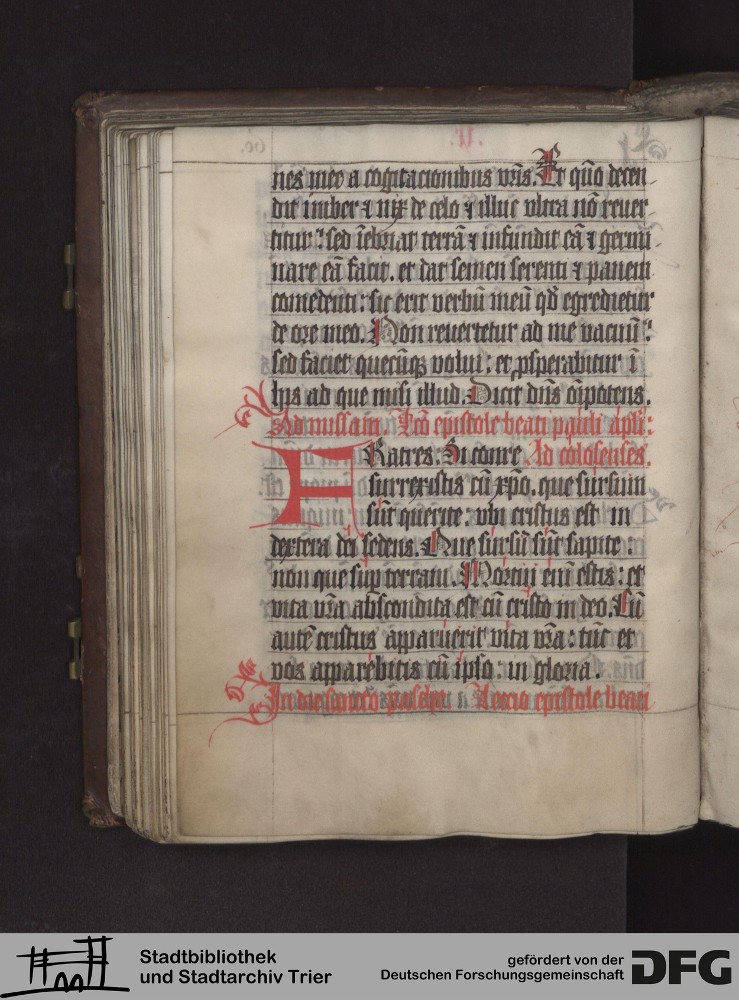 nes mee a cogitacionibus vr̄is. Et quō decen-
dit imber ⁊ nix de celo ⁊ illuc vltra nō reuer-
titur: sed īebriat terrā ⁊ infundit eā ⁊ germi-
nare eā facit. et dat semen serenti ⁊ panem
comedenti: sic erit verbū meū qd̄ egredietur
de ore meo. Non reuertetur ad me vacuū:
sed faciet quecūqꝫ volui: et ꝓsperabitur ī
hijs ad que misi illud. Dicit dn̄s oīpotens.
Ad missam. Lcō epistole beati pauli apl̄i:
FRatres. Si conre Ad colosenses.
surrexistis cū xp̄o. que sursum
sūt querite: vbi cristus est in
dextera dei sedens. Que sursū sūt sapite:
non que suꝑ terram. Mortui enī estis: et
vita vr̄a abscondita est cū cristo in deo. Cū
autē cristus apparuerit vita vr̄a: tūc et
vos apparebitis cū ipso: in gloria.
In die sancto pasche Lectio epistole beati
Stadtbibliothek
und Stadtarchiv Trier
gefördert von der
Deutschen Forschungsgemeinschaft
DFG